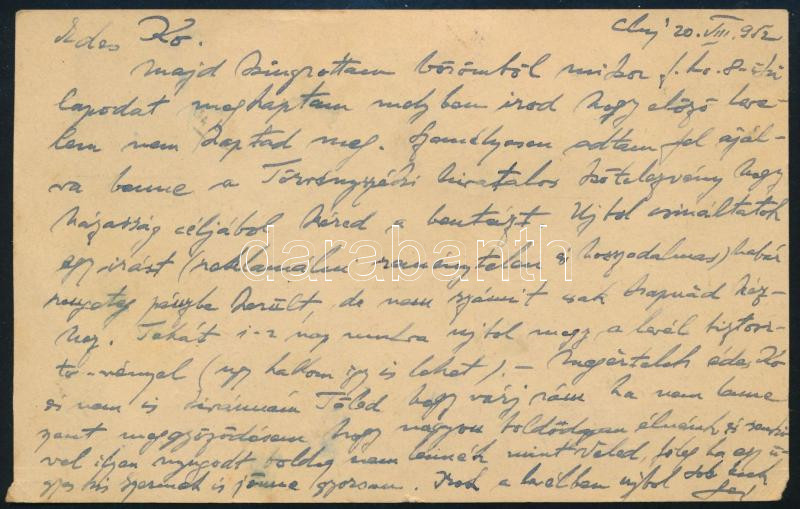 Cluj 20. VIII. 952
Édes Kó.
majd kiugrottam bőrömből mikor f. hó 8-i
lapodat megkaptam melyben irod hogy előző leve-
lem nem kaptad meg. Személyesen adtam fel ajál-
va benne a Törvényszéki hivatalos kötelezvény hogy
házasság céljából kéred a Ujból csináltatok
egy irást (reklamálni reménytelen és hosszadalmas) habár
rengeteg pénzbe került de nem számit csak kapnád kéz-
hez. Tehát 1-2 nap mulva ujból megy a levél biztosi-
tó-vénnyel (ugy hallom igy is lehet). - Megértelek édes Kó
és nem is kivánnám Tőled hogy várj rám ha nem lenne
szent meggyőződésem hogy nagyon boldogan élnénk és senki-
vel ilyen nyugodt boldog nem lennék mint Veled, főleg ha egy ü-
gyes kis gyermek is jönne gyorsan. Irok a levélben ujból
darabanth